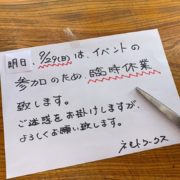 明日、9/29(日)は、イベントの
参加のため、臨時休業
致します。
ご迷惑をお掛けしますが、
よろしくお願い致します。
ネモトワークス